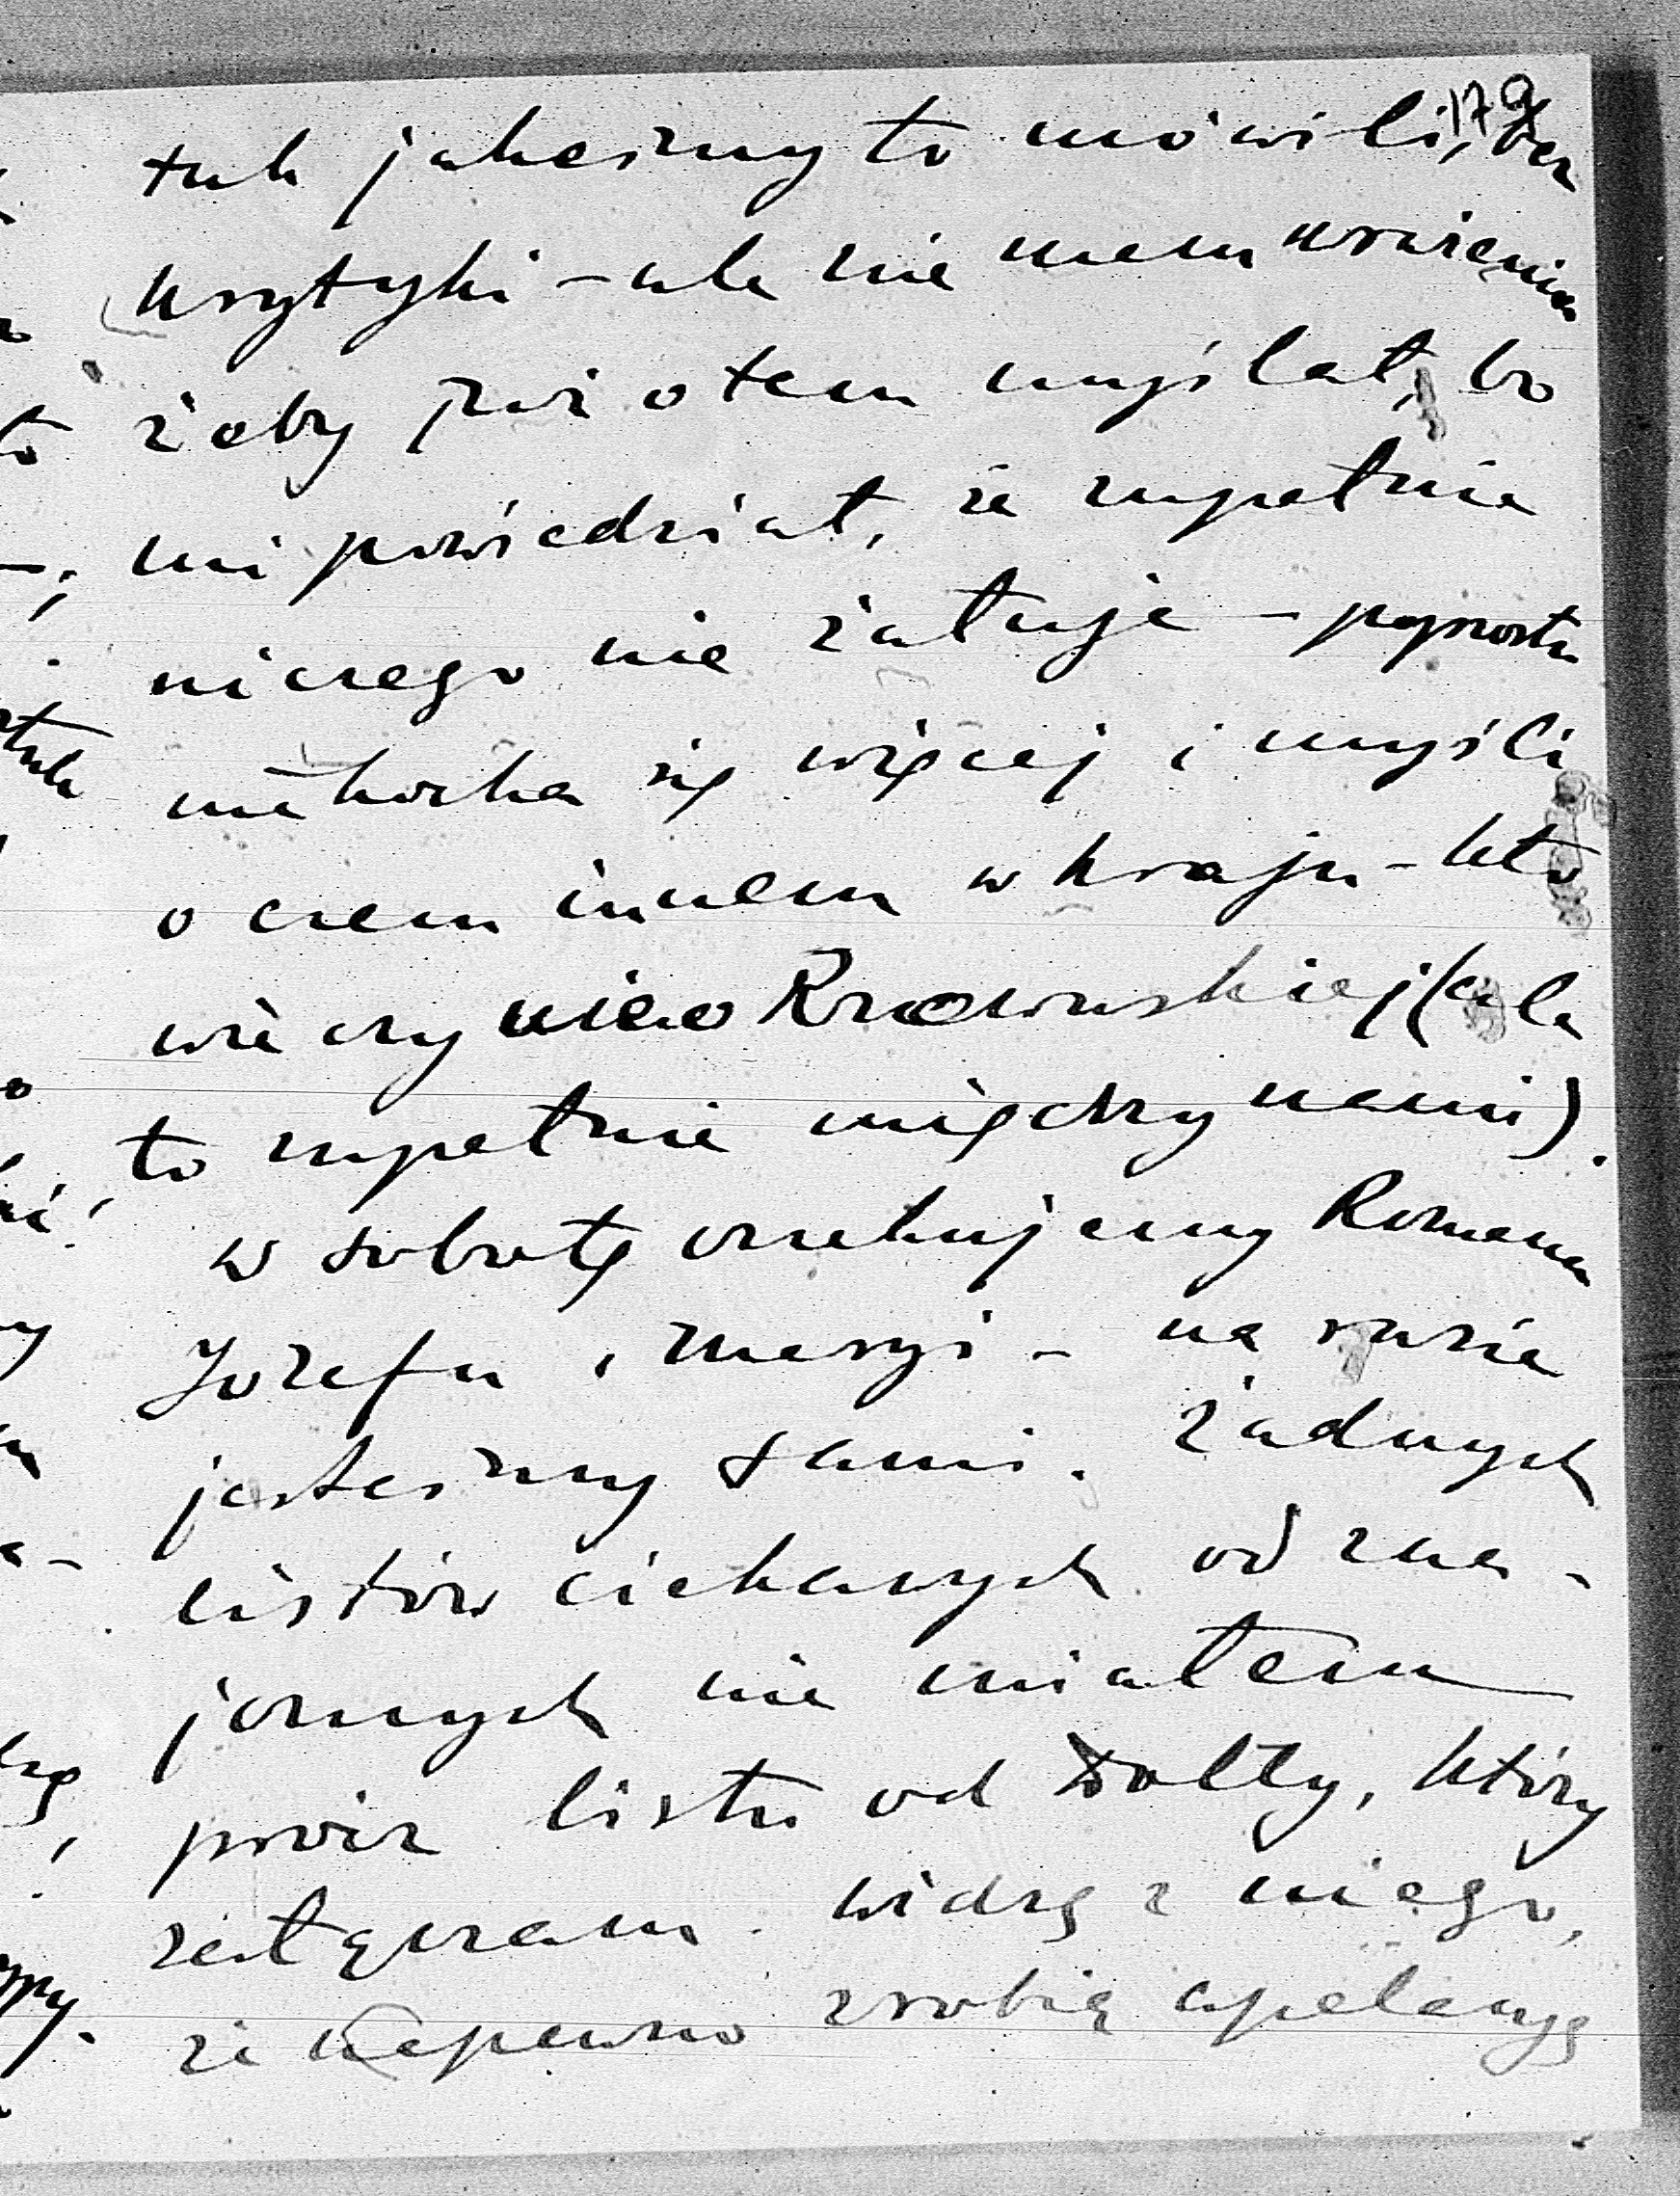 179
tak jakeśmy to mówili, bez
krytyki – ale nie mam wrażenia
żeby już o tem myślał, bo
mi powiedział, że zupełnie
niczego nie żałuje – poprostu
nie kocha się więcej i myśli
o czem innem w kraju – kto
wie czy nie o Krzowuskiej (ale
to zupełnie między nami).
w sobotę oczekujemy Romana
Józefa i Maryi – na razie
jesteśmy sami. Żadnych
listów ciekawych od zna-
jomych nie miałem
prócz listu od Dolly, który
załączam. Widzę z niego,
że napewno zrobią apelacyę